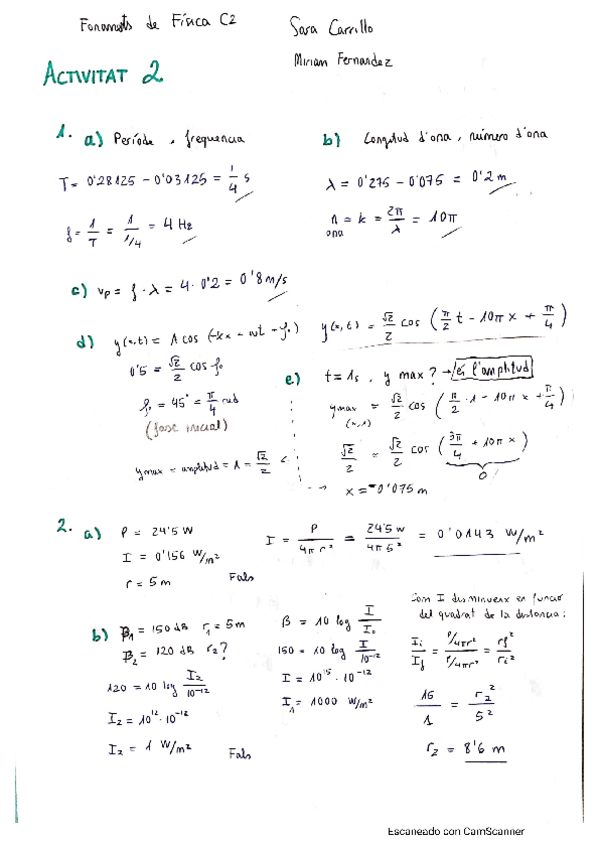 Fonaments de Física C2
Sara Carrillo
Miriam Fernandez
ACTIVITAT 2
1. a) Període, frequencia
T = 0'28125 - 0'03125 = 1/4 s
f = 1/T = 1/1/4 = 4 Hz
b) Longitud d'ona, número d'ona
λ = 0'275 - 0'075 = 0'2 m
k = 2π/λ = 10π
ona
c) vp = f · λ = 4 · 0'2 = 0'8 m/s
d) y(x,t) = A cos (-kx - ωt - φ₀)
0'5 = √2/2 cos φ₀
φ₀ = 45° = π/4 rad
(fase inicial)
ymax = amplitud = A = √2/2
y(x,t) = √2/2 cos (π/2 t - 10π x + π/4)
e) t = 1s, y max? → és l'amplitud
ymax = √2/2 cos (π/2 · 1 - 10π x + π/4)
(x,1)
√2/2 = √2/2 cos (3π/4 + 10π x)
0
x = -0'075 m
2. a) P = 24'5 W
I = 0'156 W/m²
r = 5 m
Fals
I = P/4πr² = 24'5 W/4π5² = 0'0143 W/m²
b) β₁ = 150 dB r₁ = 5m
β₂ = 120 dB r₂?
120 = 10 log I₂/10⁻¹²
I₂ = 10¹² · 10⁻¹²
I₂ = 1 W/m²
Fals
β = 10 log I/I₀
150 = 10 log I/10⁻¹²
I = 10¹⁵ · 10⁻¹²
I₁ = 1000 W/m²
Com I disminueix en funció
del quadrat de la distancia:
Ii/If = P/4πr²/P/4πr² = rf²/ri²
15/1 = r₂²/5²
r₂ = 8'6 m
Escaneado con CamScanner